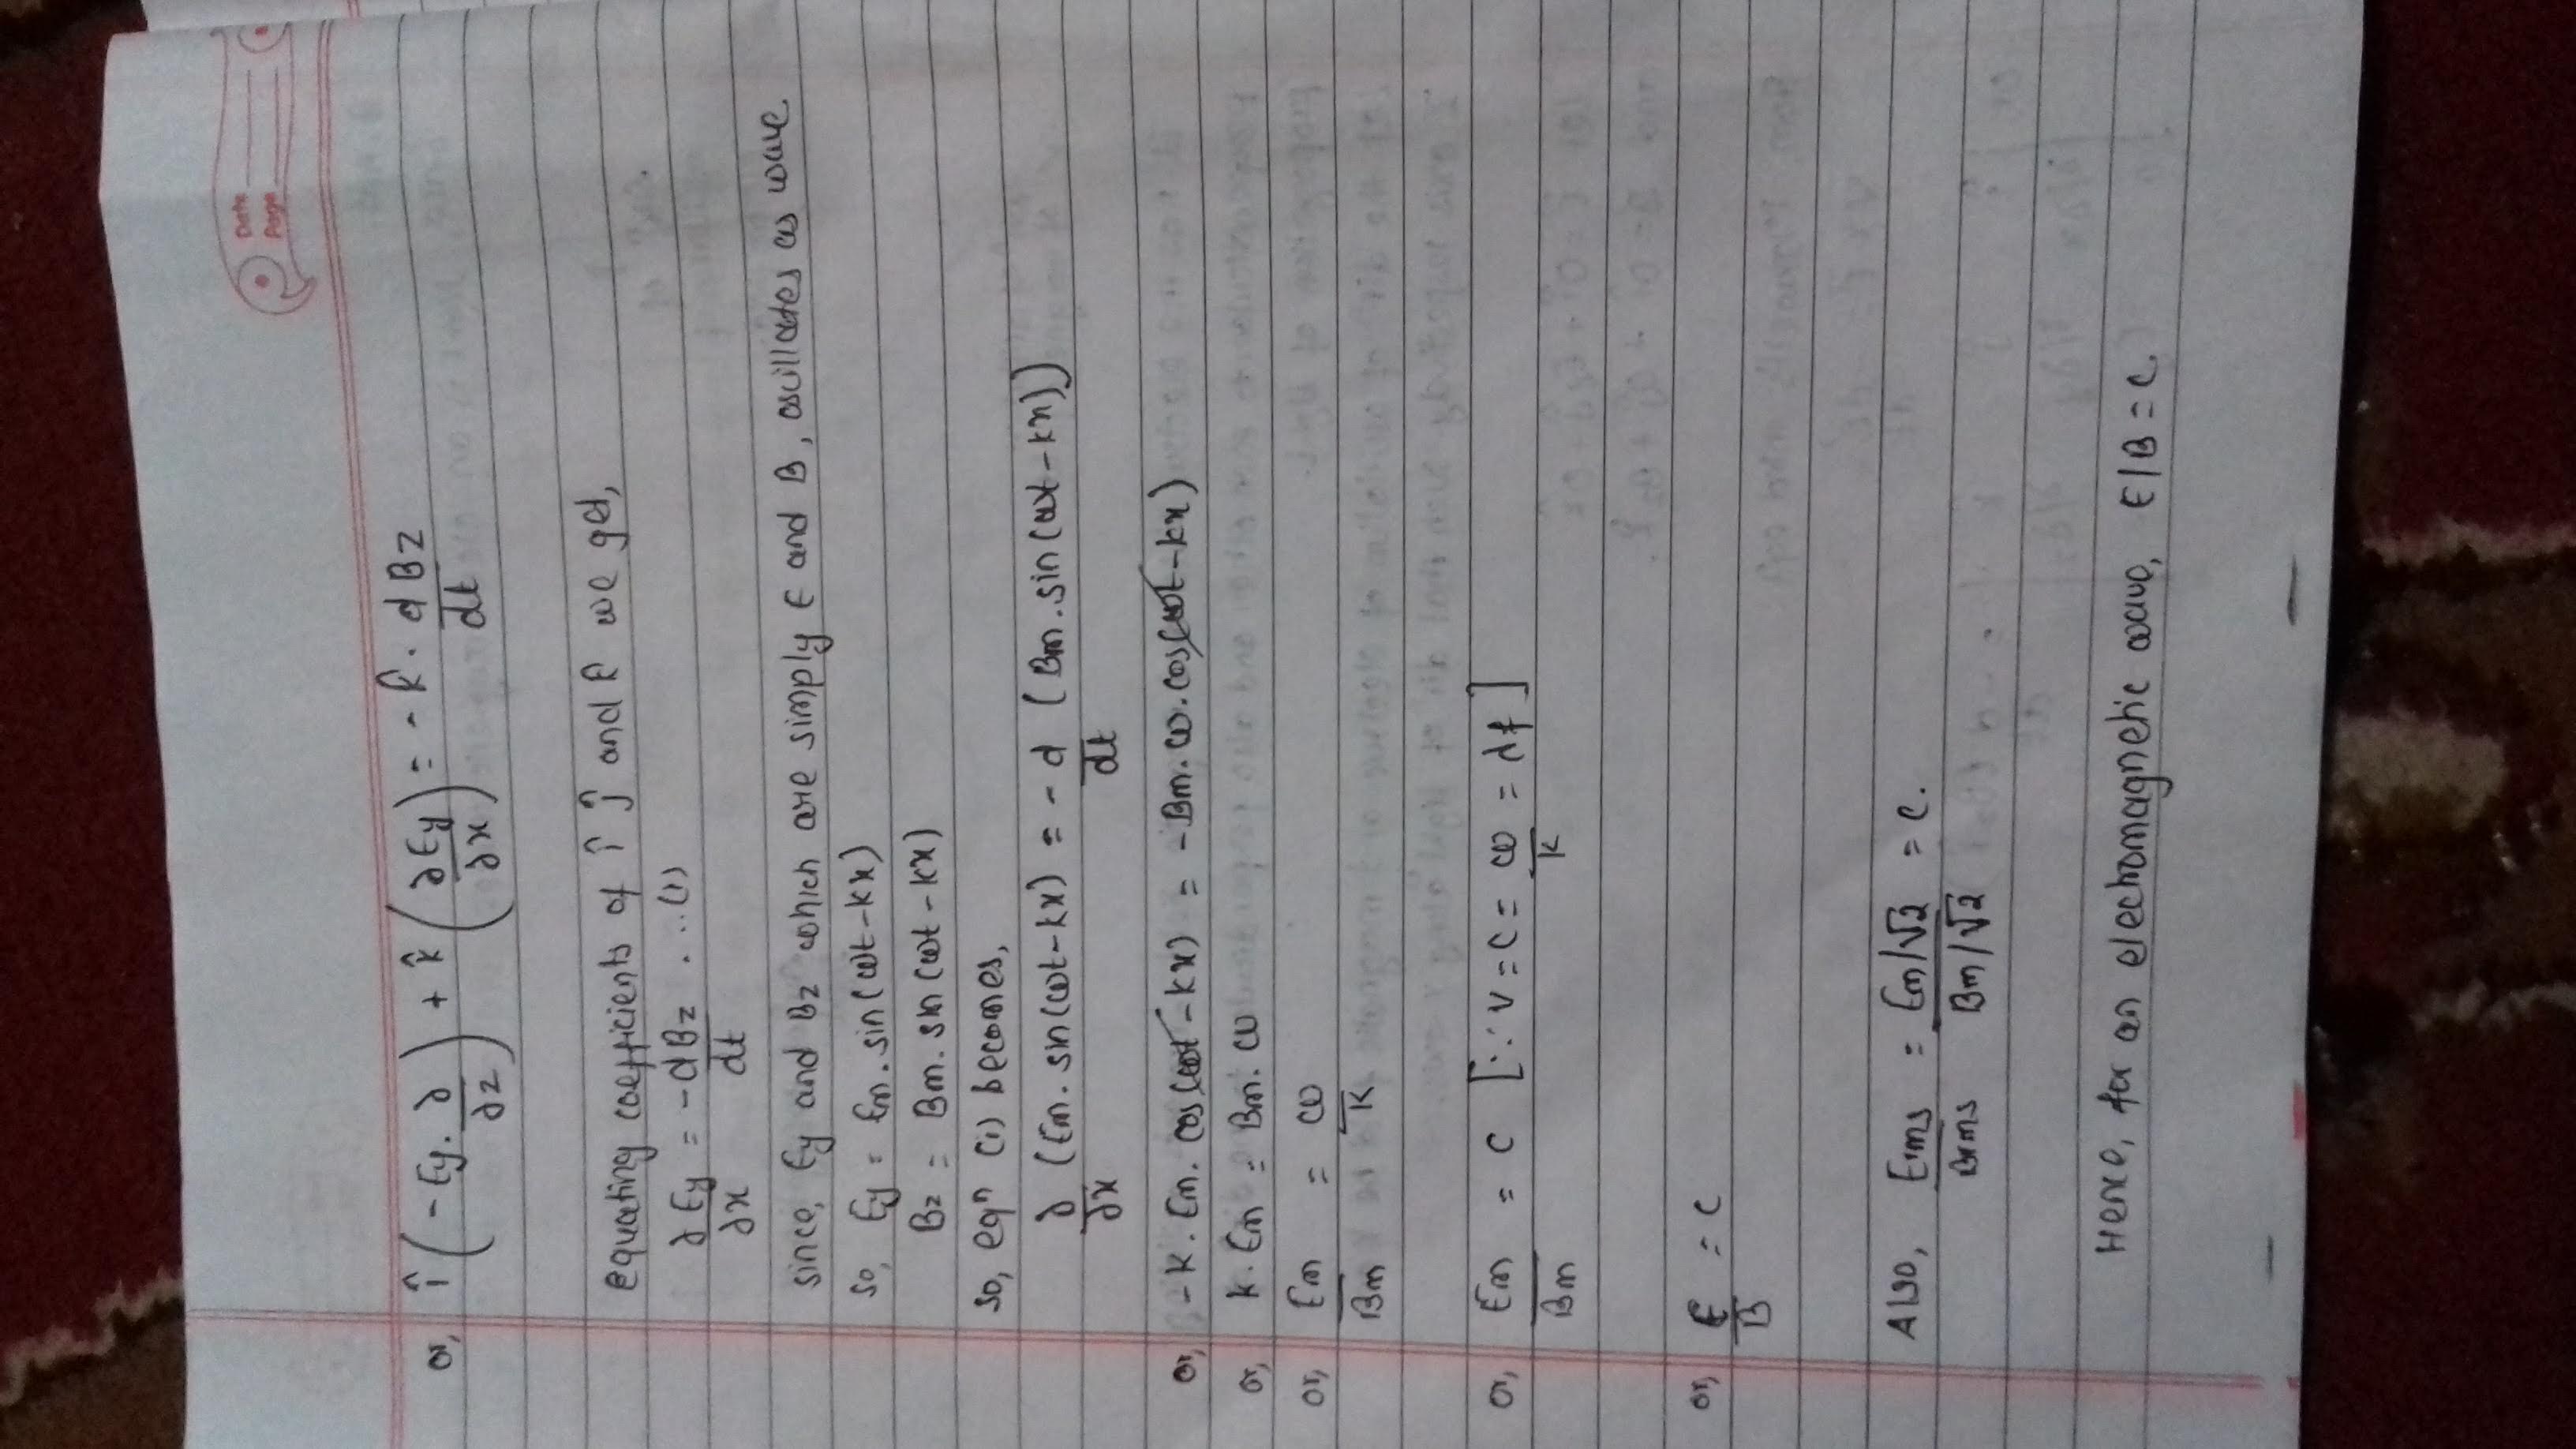 Date
Page
or, î (-Ey. ∂/∂z) + k̂ (∂Ey/∂x) = - k̂. dBz/dt
equating coefficients of î ĵ and k̂ we get,
∂Ey/∂x = -dBz/dt ...(1)
since, Ey and Bz which are simply E and B, oscillates as wave.
so, Ey = Em. sin(ωt-kx)
Bz = Bm. sin(ωt-kx)
so, eqⁿ (i) becomes,
∂/∂x (Em. sin(ωt-kx) = - d/dt (Bm. sin(ωt-kx))
or, -k. Em. cos(ωt-kx) = -Bm. ω. cos(ωt-kx)
or, k. Em = Bm. ω
or, Em/Bm = ω/k
or, Em/Bm = c [∵ v = c = ω/k = λf]
or, E/B = c
Also, Erms/Brms = Em/√2 / Bm/√2 = c.
Hence, for an electromagnetic wave, E/B = c.